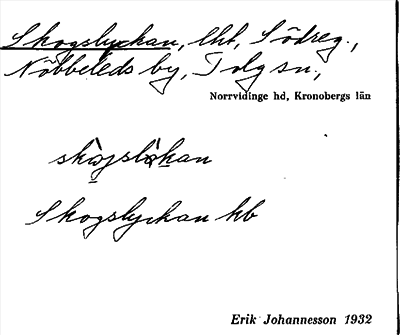 Skogslyckan, lht, Södreg.,
Nöbbeleds by, Tolg sn.,
Norrvidinge hd, Kronobergs län
skògslỳkan
Skogslyckan hb
Erik Johannesson 1932